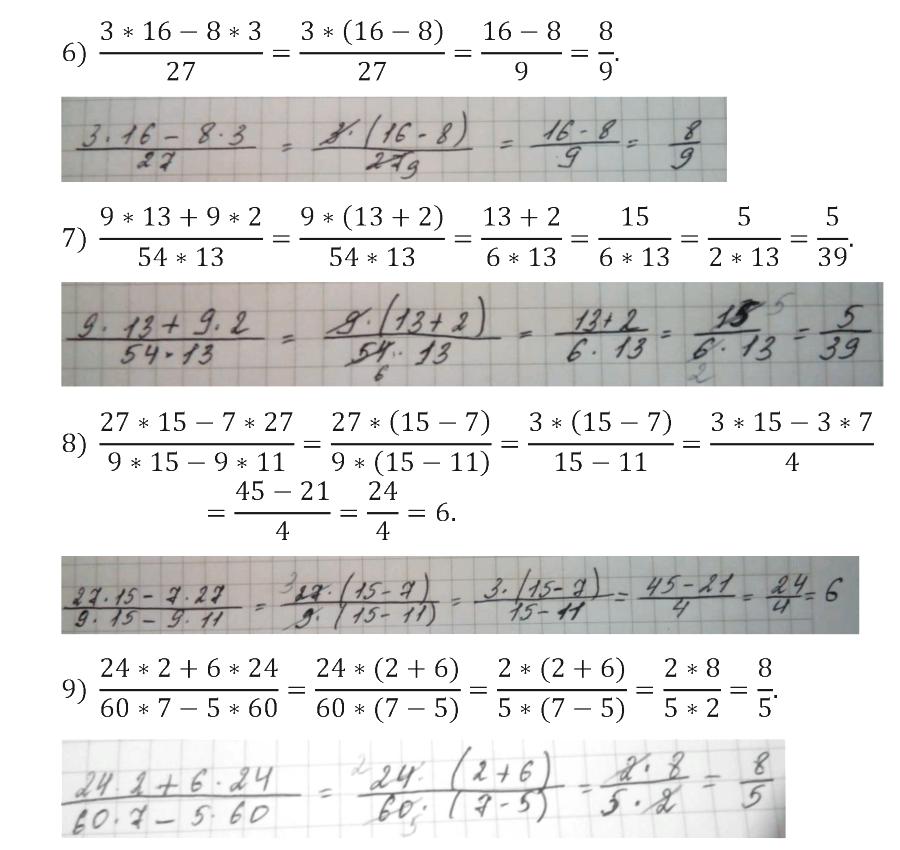 6) (3 * 16 − 8 * 3)/27 = (3 * (16 − 8))/27 = (16 − 8)/9 = 8/9.
(3 · 16 − 8 · 3)/27 = (3 · (16 - 8))/27 9 = (16 - 8)/9 = 8/9
7) (9 * 13 + 9 * 2)/(54 * 13) = (9 * (13 + 2))/(54 * 13) = (13 + 2)/(6 * 13) = 15/(6 * 13) = 5/(2 * 13) = 5/39.
(9 · 13 + 9 · 2)/(54 · 13) = (9 · (13 + 2))/(54 · 13) 6 = (13 + 2)/(6 · 13) = 15 5/(6 · 13) 2 = 5/39
8) (27 * 15 − 7 * 27)/(9 * 15 − 9 * 11) = (27 * (15 − 7))/(9 * (15 − 11)) = (3 * (15 − 7))/(15 − 11) = (3 * 15 − 3 * 7)/4
= (45 − 21)/4 = 24/4 = 6.
(27 · 15 − 7 · 27)/(9 · 15 − 9 · 11) = 3 (27 · (15 − 7))/(9 · (15 − 11)) = (3 · (15 − 7))/(15 − 11) = (45 − 21)/4 = 24/4 = 6
9) (24 * 2 + 6 * 24)/(60 * 7 − 5 * 60) = (24 * (2 + 6))/(60 * (7 − 5)) = (2 * (2 + 6))/(5 * (7 − 5)) = (2 * 8)/(5 * 2) = 8/5.
(24 · 2 + 6 · 24)/(60 · 7 − 5 · 60) = 2 (24 · (2 + 6))/(60 · (7 - 5)) 5 = (2 · 8)/(5 · 2) = 8/5